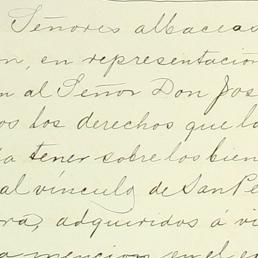 Señores albaceas
n, en representación
n al Señor Don Jos
os los derechos que la
ia tener sobre los bien
al vínculo de San Pe
ra, adquiridos á vi
a mencion en el